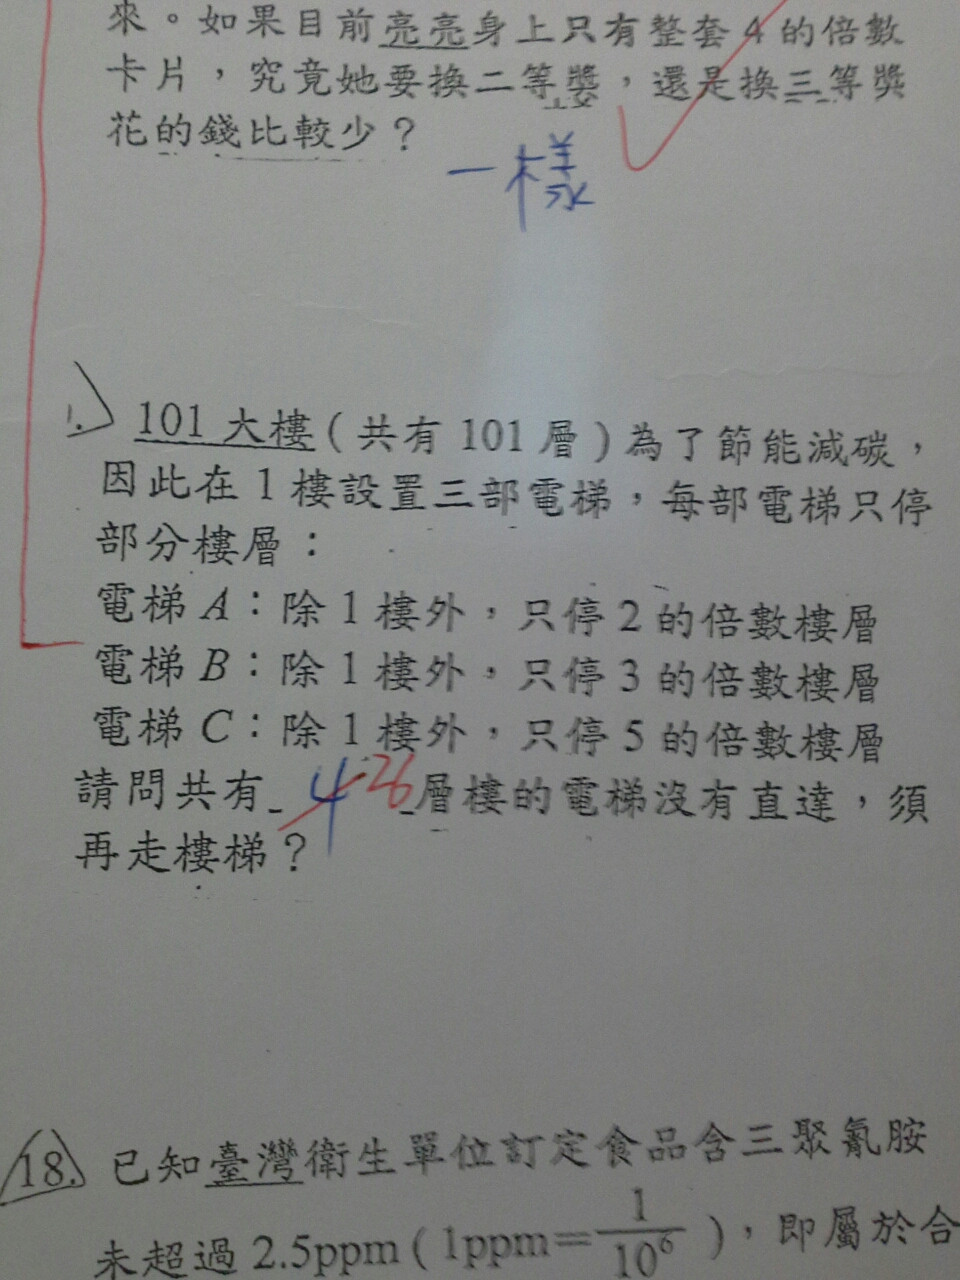 來。如果目前亮亮身上只有整套4的倍數
卡片，究竟她要換二等獎，還是換三等獎
花的錢比較少？
一樣
1.
101大樓(共有101層)為了節能減碳，
因此在1樓設置三部電梯，每部電梯只停
部分樓層：
電梯A：除1樓外，只停2的倍數樓層
電梯B：除1樓外，只停3的倍數樓層
電梯C：除1樓外，只停5的倍數樓層
請問共有 4 26 層樓的電梯沒有直達，須
再走樓梯？
18. 已知臺灣衛生單位訂定食品含三聚氰胺
未超過2.5ppm(1ppm=1/10⁶)，即屬於合